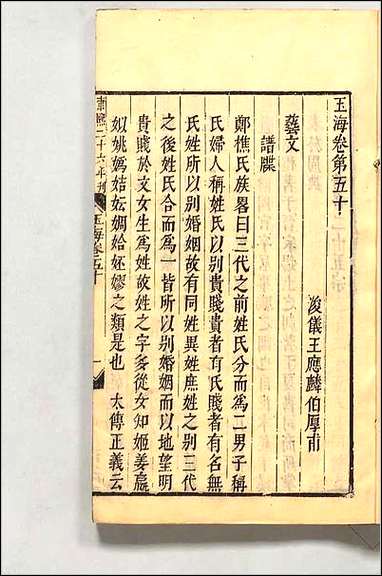 玉海卷第五十
浚儀王應麟伯厚甫
藝文
譜牒
鄭樵氏族畧曰三代之前姓氏分而爲二男子稱
氏婦人稱姓氏以别貴賤貴者有氏賤者有名無
氏姓所以别婚姻故有同姓異姓庶姓之别三代
之後姓氏合而爲一皆所以别婚姻而以地望明
貴賤於文女生爲姓故姓之字多從女如姬姜嬴
姒姚嬀姞妘婤姶㚰嫪之類是也 太傅正義云
康熙二十六年刊
玉海卷五十
一